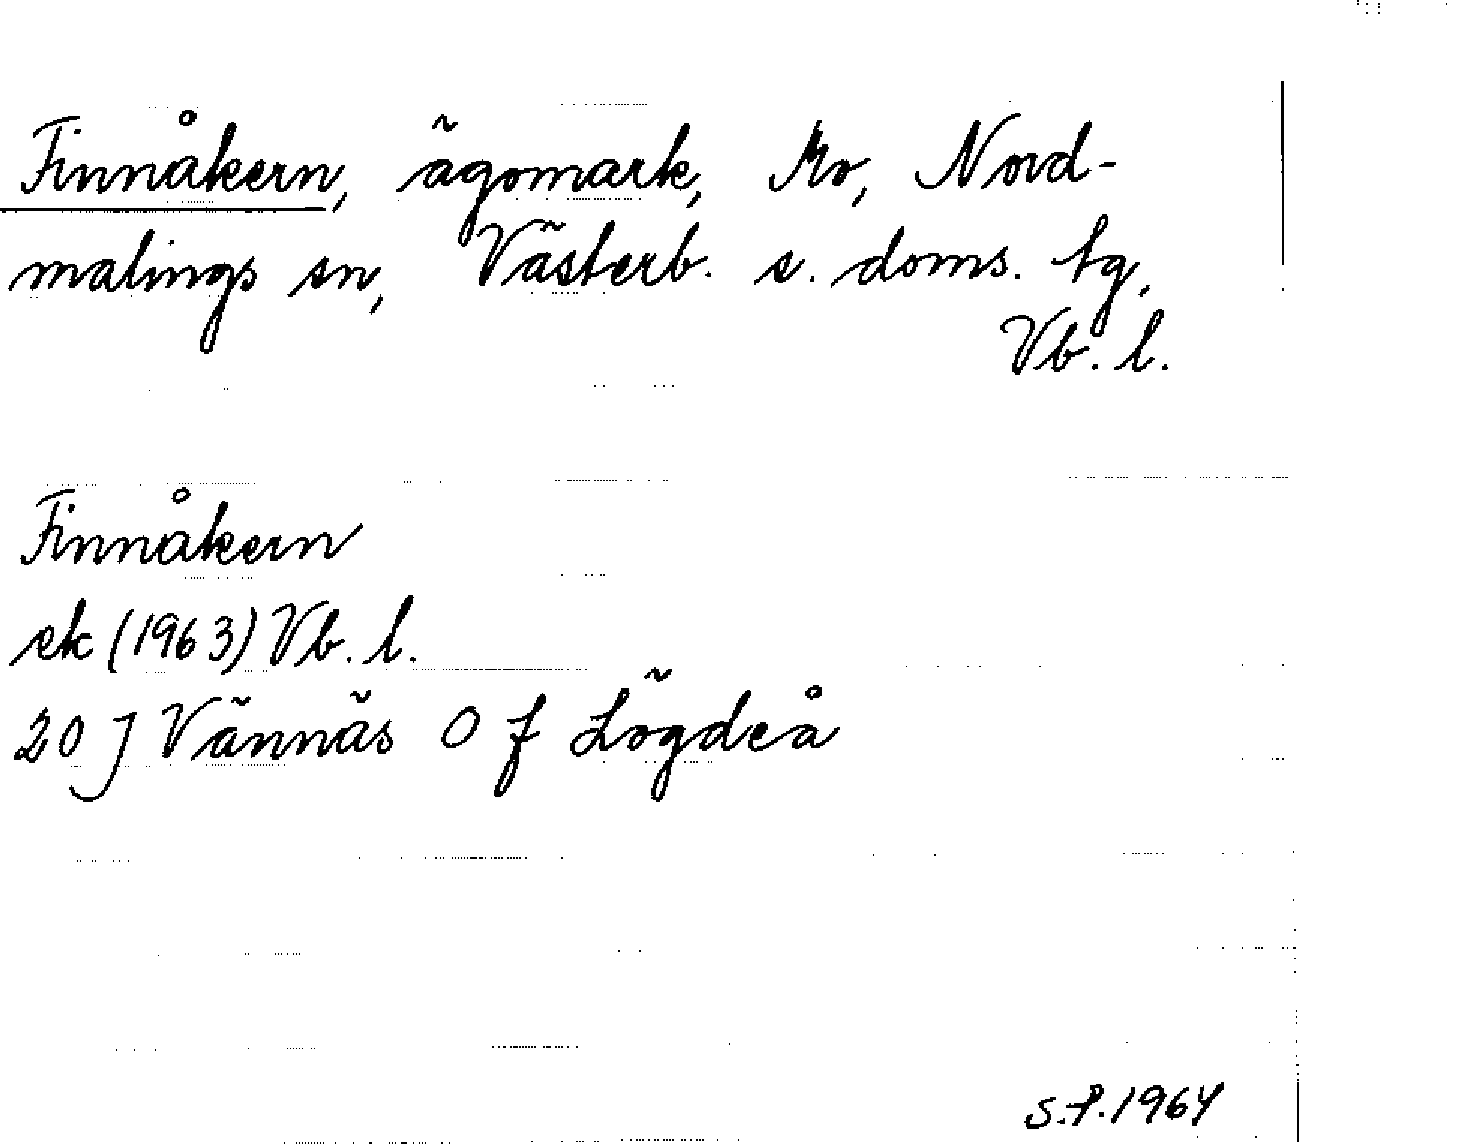 Finnåkern, ägomark, Mo, Nord-
malings sn, Västerb. s. doms. tg,
Vb. l.
Finnåkern
ek (1963) Vb. l.
20 J Vännäs 0 f Lögdeå
S.P. 1964